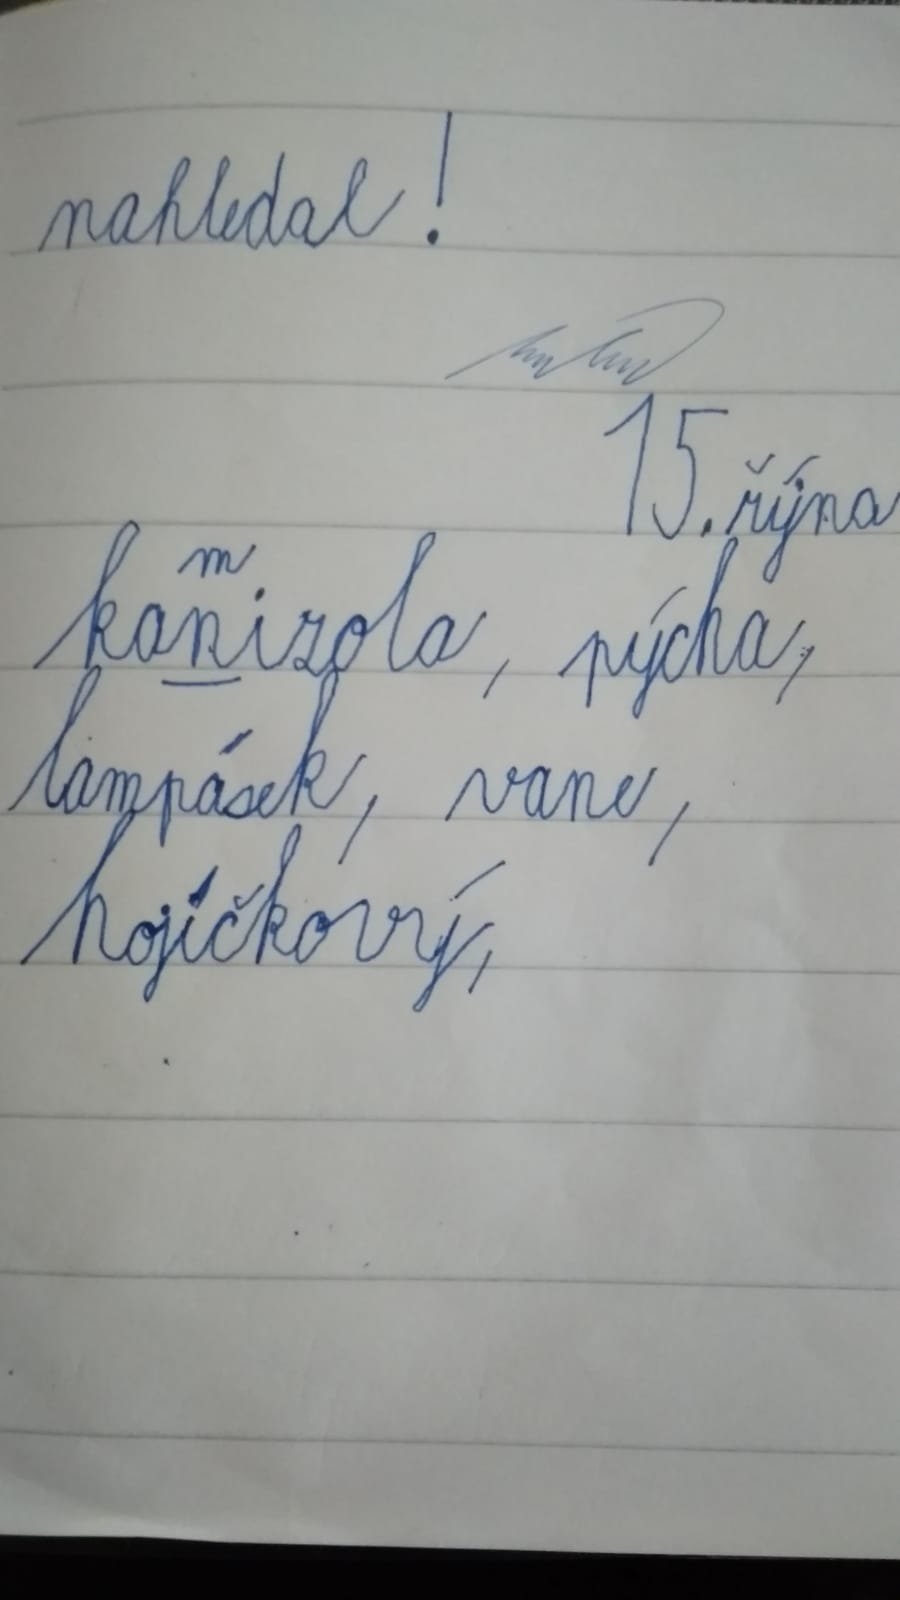 nahledal!
15. řýjna
m
kanizola, pýcha,
lampásek, vane,
hojíčkový,